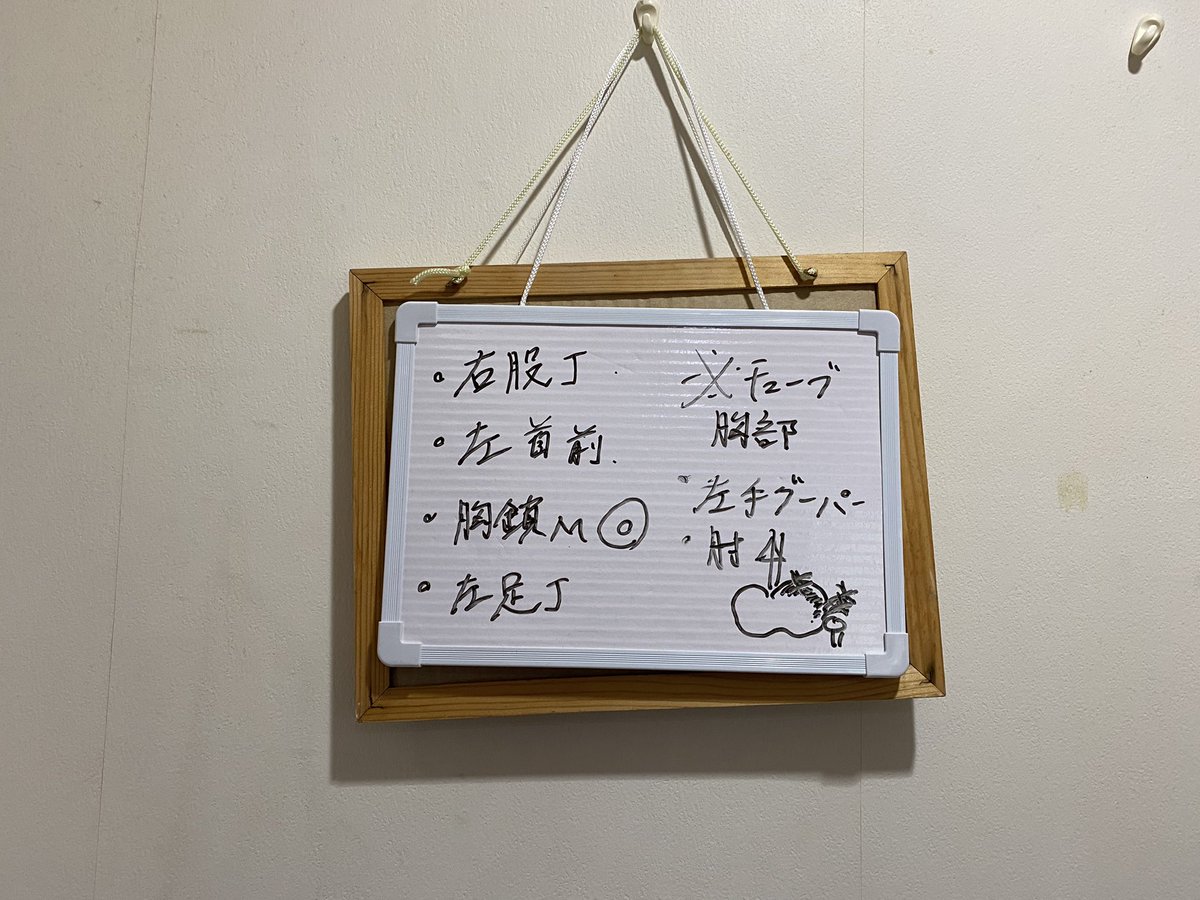 ・右股J
・左首前.
・胸鎖M ◎
・左足J
チューブ
胸部
・左手グーパー
・肘